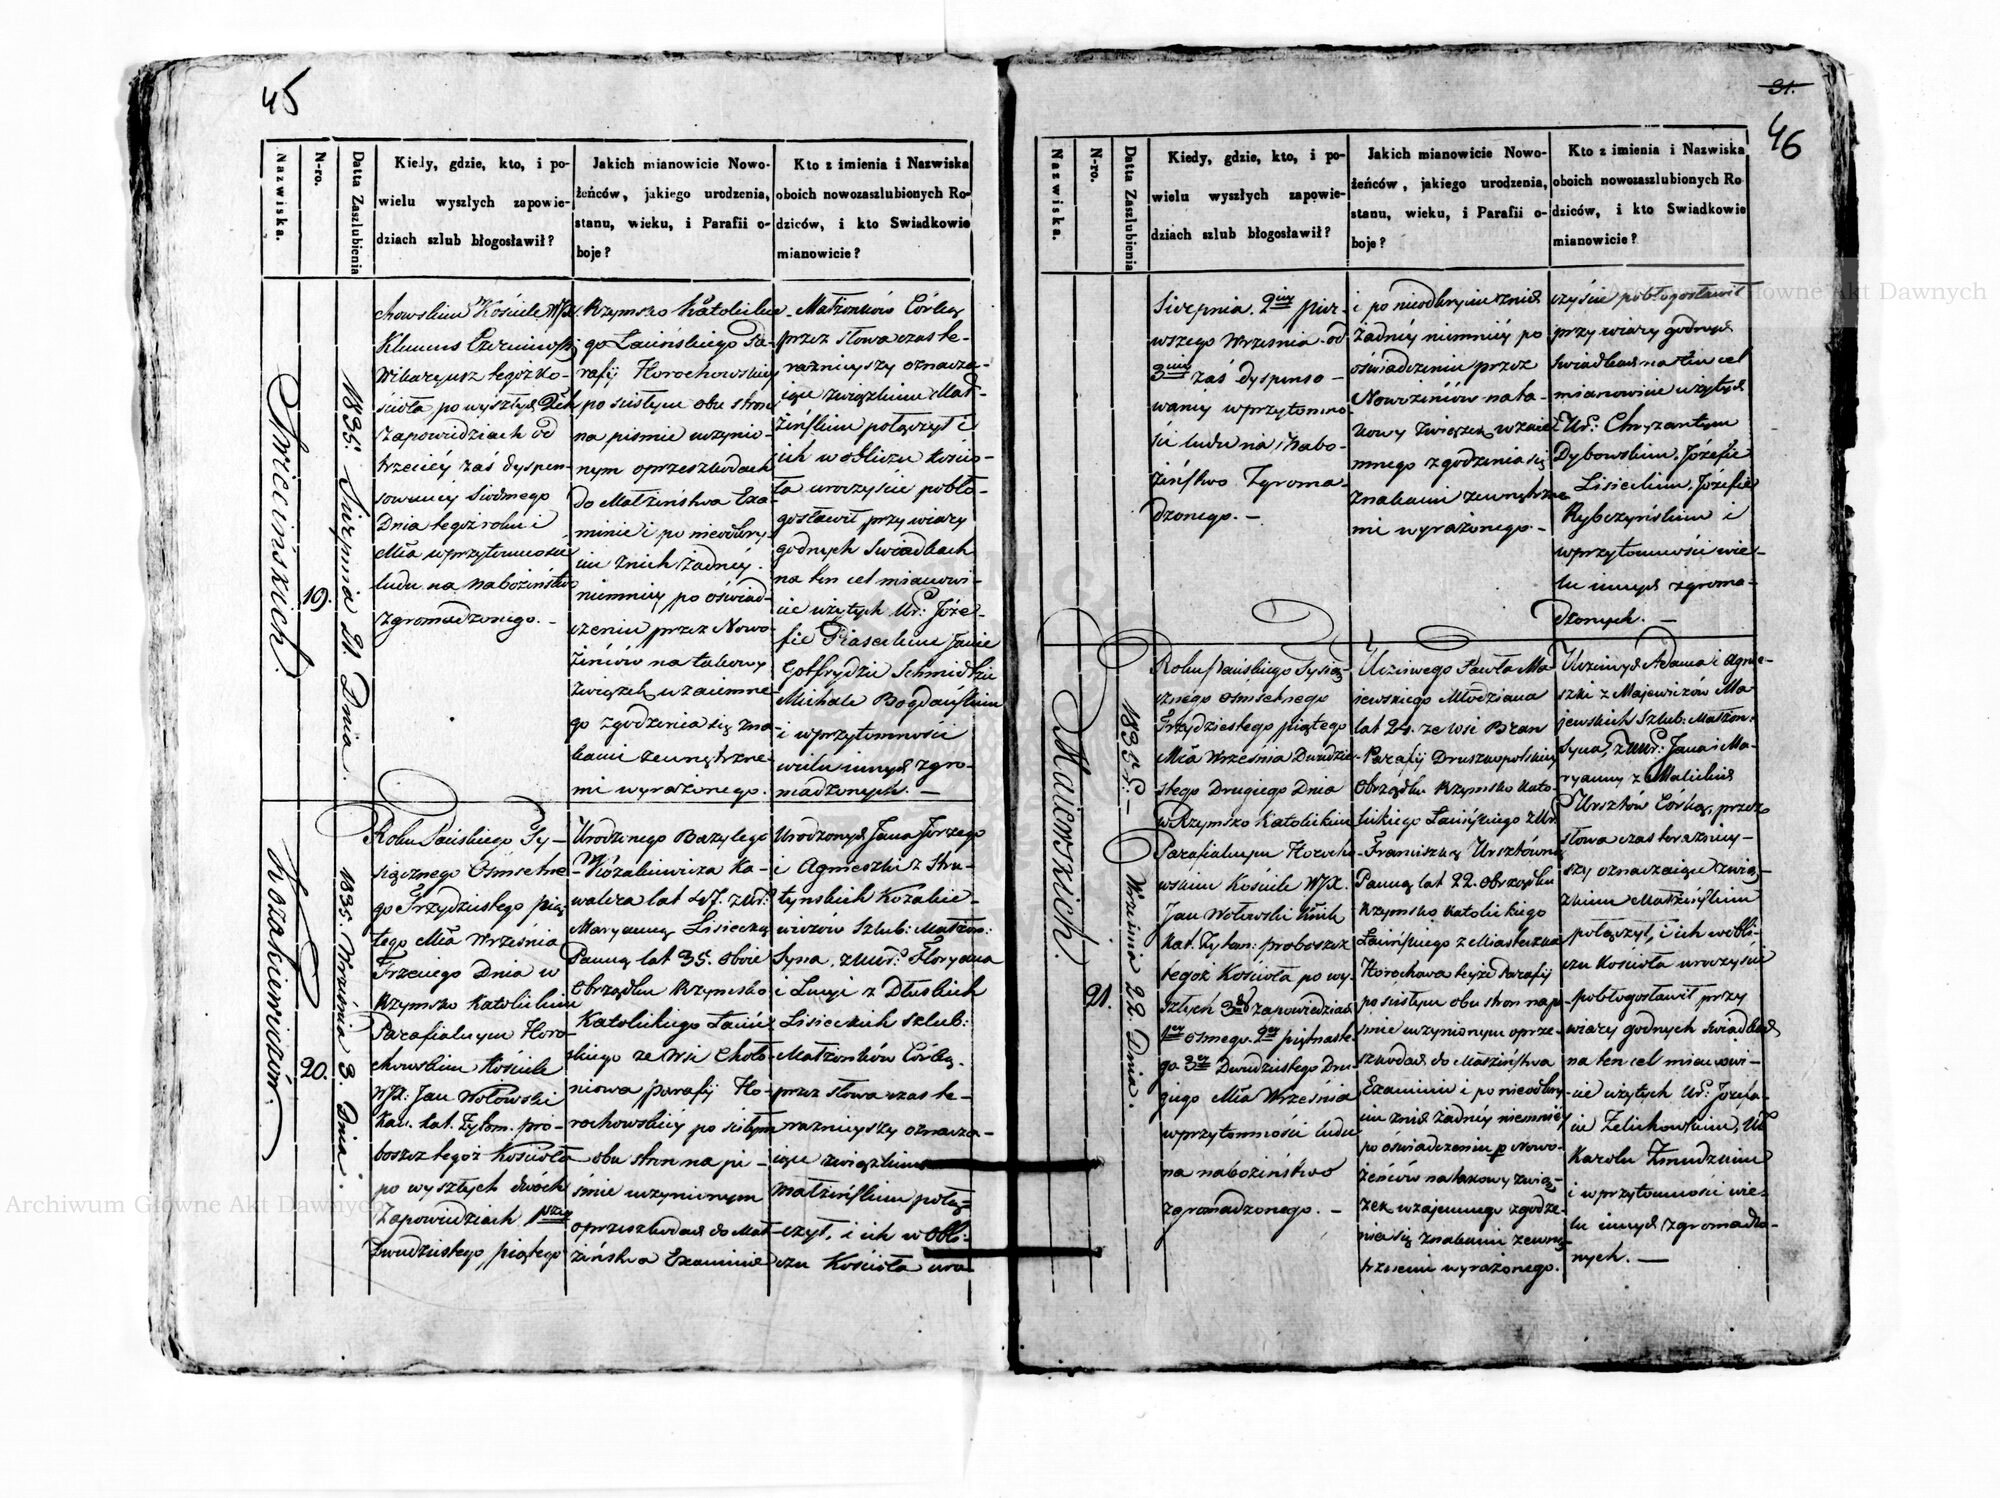 45
Nazwiska.
N-ro.
Datta Zaszlubienia
Kiedy, gdzie, kto, i po-
wielu wyszłych zapowie-
dziach szlub błogosławił?
Jakich mianowicie Nowo-
żeńców, jakiego urodzenia,
stanu, wieku, i Parafii o-
boje?
Kto z imienia i Nazwiska
oboich nowozaszlubionych Ro-
dziców, i kto Swiadkowie
mianowicie?
19.
1835. Sierpnia 21. Dnia.
chowskim Kościele WJX.
Klemens
Wikaryusz tegoż Ko-
ścioła, po wyszłych 2ch
Zapowiedziach od
trzeciéy zaś dyspen-
sowanéy Siódmego
Dnia tegoż roku i
Mca w przytomności
ludu na Nabożeństwo
zgromadzonego. —
Rzymsko Katolickie-
go Łacińskiego Pa-
rafij Horochowskiey
po ścisłym obu stron
na piśmie uczynio-
nym o przeszkodach
Do Małżeństwa Exa-
minie i po nieodkry-
ciu znich żadnéy.
niemniéy po oświad-
czeniu przez Nowo-
żeńców na takowy
związek wzaiemne-
go zgodzenia się zna-
kami zewnętrzne-
mi wyrażonego.
Małżonków Córką
przez słowa czas te-
raźnieyszy oznacza-
iące związkiem Mał-
żeńskim połączył i
ich w obliczu kościo-
ła uroczyście pobło-
gosławił przy wiary
godnych Swiadkach
na ten cel mianowi-
cie użytych Ur: Józe-
fie Piaseckim Janie
Gotfrydzie Schmidtzie
Michale Bogdańskim
i w przytomności
wielu innych zgro-
madzonych. —
Kozakiewiczów.
20.
1835. Września 3. Dnia.
Roku Pańskiego Ty-
siącznego Ośmsetne-
go Trzydziestego pią-
tego Mca Września
Trzeciego Dnia w
Rzymsko Katolickim
Parafialnym Horo-
chowskim Kościele
WJX: Jan Wołowski
Kan. Kat. Żytom. pro-
boszcz tegoż Kościoła
po wyszłych dwóch
Zapowiedziach
Dwudziestego piątego
Urodzonego Bazylego
Kozakiewicza Ka-
walera lat 47. z Ur:
Maryanną Lisiecką
Panną lat 35. oboie
Obrządku Rzymsko
Katolickiego Łaciń-
skiego ze Wsi Choło-
niowa parafij Ho-
rochowskiéy po ścisłym
obu stron na pi-
śmie uczynionym
o przeszkodach do Mał-
żeństwa Examinie
Urodzonych Jana Jerzego
i Agnieszki z Stru-
tyńskich Kozakie-
wiczów Szlub: Małżon:
Syna, z Ur: Floryana
i Łucyi z Dłuskich
Lisieckich szlub:
Małżonków Córką,
przez słowa czas te-
raznieyszy oznacza-
iące związkiem
Małżeńskim połą-
czył, i ich w obli-
czu Kościoła uro-
31.
46
Nazwiska.
N-ro.
Datta Zaszlubienia
Kiedy, gdzie, kto, i po-
wielu wyszłych zapowie-
dziach szlub błogosławił?
Jakich mianowicie Nowo-
żeńców, jakiego urodzenia,
stanu, wieku, i Parafii o-
boje?
Kto z imienia i Nazwiska
oboich nowozaszlubionych Ro
dziców, i kto Swiadkowie
mianowicie?
Sierpnia. 2 pier-
wszego Września od
3 zaś dyspenso-
waney w przytomno-
ści ludu na Nabo-
żeństwo Zgroma-
dzonego. —
i po nieodkryciu znich
żadnéy niemniéy po
oświadczeniu przez
Nowożeńców na ta-
kowy związek wzaie-
mnego zgodzenia się
znakami zewnętrzne-
mi wyrażonego. —
czyście pobłogosławił
przy wiary godnych
świadkach na ten cel
mianowicie użytych
Ur: Chryzantym
Dybowskim, Józefie
Lisieckim, Józefie
Rybczyńskim i
w przytomności wie-
lu innych zgroma-
dzonych. —
Maiewskich.
21.
1835 r. — Września 22. Dnia.
Roku Pańskiego Tysią-
cznego ośmsetnego
Trzydziestego piątego
Mca Września Dwudzie-
stego Drugiego Dnia
w Rzymsko Katolickim
Parafialnym Horocho-
wskim Kościele WJX.
Jan Wołowski
Kat. Żytom: proboszcz
tegoż Kościoła po wy-
szłych 3ch zapowiedziach
ósmego. 2 piętnaste-
go 3 Dwudziestego Dru-
giego Mca Września
w przytomności ludu
na nabożeństwo
zgromadzonego. —
Uczciwego Pawła Ma-
jewskiego Młodziana
lat 24. ze Wsi Bran
Parafij Druszkopolskiéy
Obrządku Rzymsko Kato-
lickiego Łacińskiego z Ur
Franciszką Ursztówną
Panną lat 22. obrządku
Rzymsko Katolickiego
Łacińskiego z Miasteczka
Horochowa teyże Parafij
po ścisłym obu stron na p-
śmie uczynionym o prze-
szkodach do Małżeństwa
Examinie i po nieodkry-
ciu znich żadnéy niemniéy
po oświadczeniu p Nowo-
żeńców na takowy zwią-
zek wzajemnego zgodze-
nia się znakami zewnę-
trznemi wyrażonego.
Uczciwych Adama i Agnie-
szki z Majewiczów Ma-
jewskich Szlub: Małżon:
Syna, z Ur: Jana i Ma-
ryanny z Malickich
Ursztów Córką, przez
słowa czas teraźniey-
szy oznaczaiące zwią-
zkiem Małżeńskim
połączył, i ich w obli-
czu Kościoła uroczyście
pobłogosławił przy
wiary godnych świadkach
na ten cel mianowi-
cie użytych Ur: Józefa-
cie Zelichowskim, Ur
Karolu Żmudzkim
i w przytomności wie-
lu innych zgromadzo-
nych. —
Archiwum Główne Akt Dawnych
Archiwum Główne Akt Dawnych